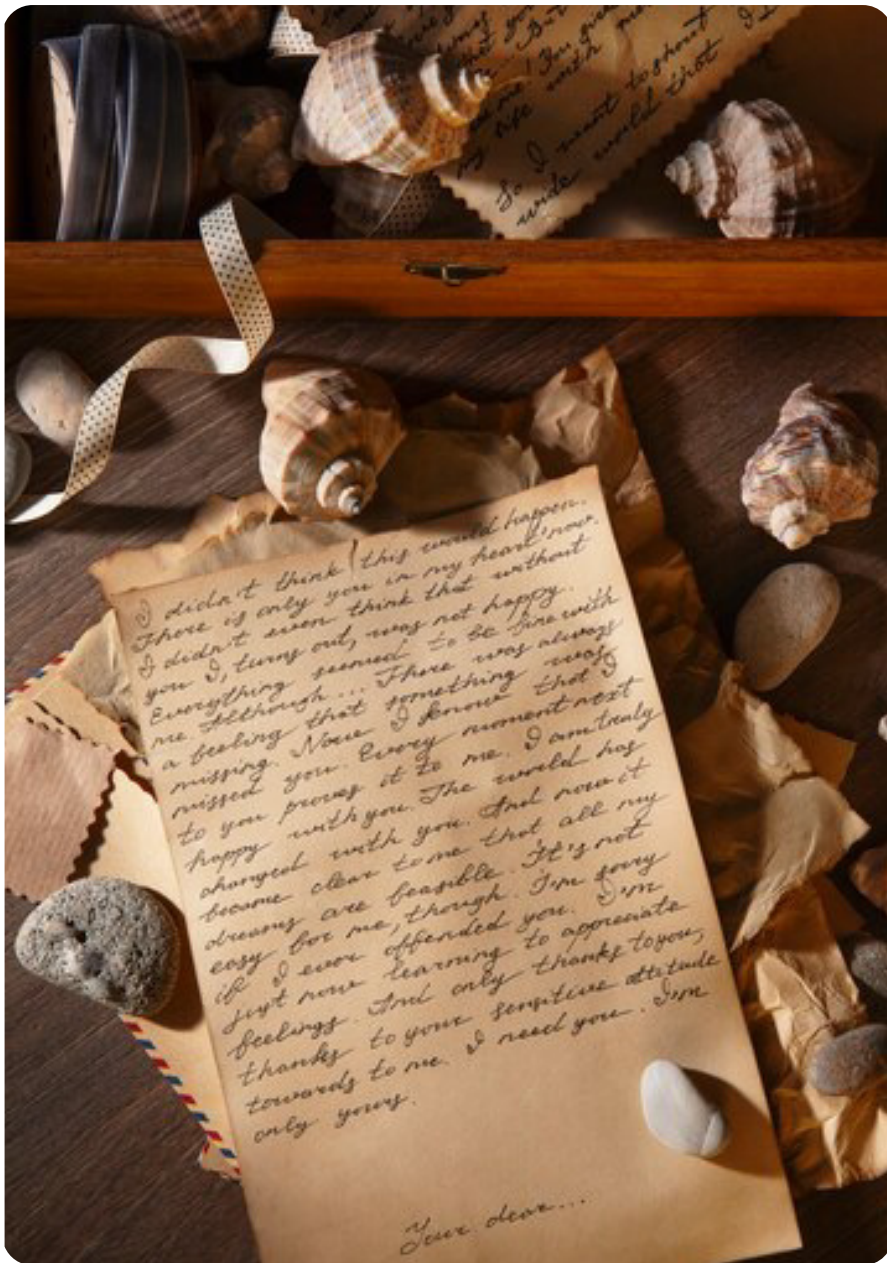 you
me! You give
my life with me
So I want to shout
wide world that I
I didn't think this would happen.
There is only you in my heart now.
I didn't even think that without
you I, turns out, was not happy.
Everything seemed to be fine with
me. Although... There was always
a feeling that something was
missing. Now I know that I
missed you. Every moment next
to you proves it to me. I am truly
happy with you. The world has
changed with you. And now it
became clear to me that all my
dreams are feasible. It's not
easy for me, though. I'm sorry
if I ever offended you. I'm
just now learning to appreciate
feelings. And only thanks to you,
thanks to your sensitive attitude
towards to me. I need you. I'm
only yours.
Your dear...